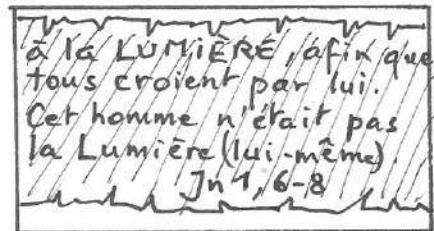 à la LUMIÈRE, afin que
tous croient par lui.
Cet homme n'était pas
la Lumière (lui-même)
Jn 1, 6-8